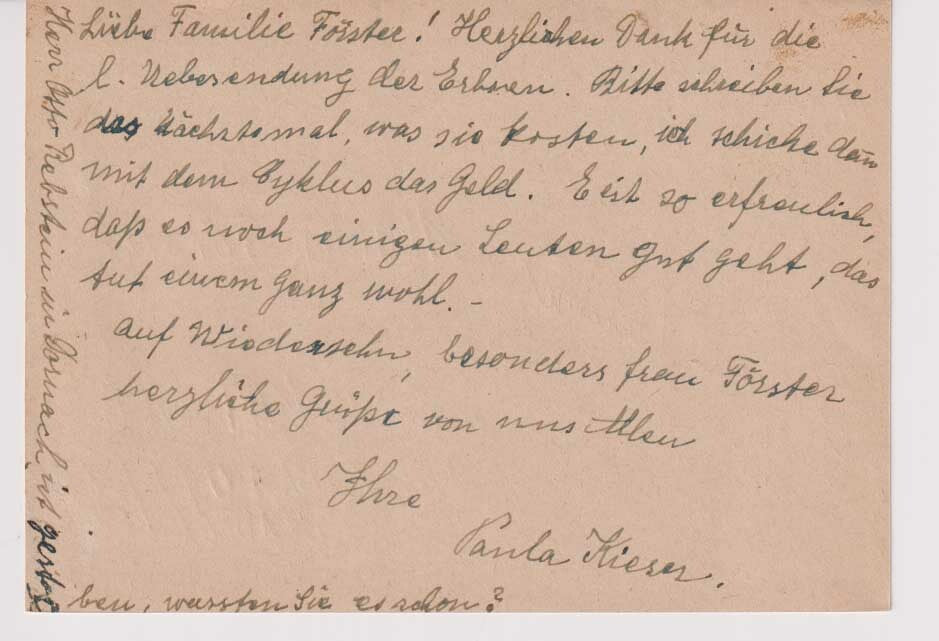 Liebe Familie Förster! Herzlichen Dank für die
l. Uebersendung der Erbsen. Bitte schreiben Sie
das nächstemal, was sie kosten, ich schicke dann
mit dem Cyklus das Geld. Es ist so erfreulich,
daß es noch einigen Leuten gut geht, das
tut einem ganz wohl. –
Auf Wiedersehn, besonders Frau Förster
herzliche Grüße von uns Allen
Ihre
Paula Kieser.
Herr Otto Rebstein in Dornach ist gestor
ben, wussten Sie es schon?